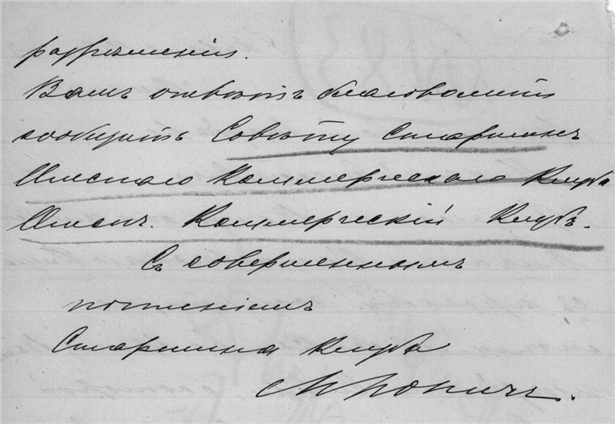 разрѣшенія.
Вашъ отвѣтъ благоволите
сообщить Совѣту Старшинъ
Омскаго Коммерческаго Клуба
Омскъ. Коммерческій Клубъ.
Съ совершеннымъ
почтеніемъ
Старшина Клуба